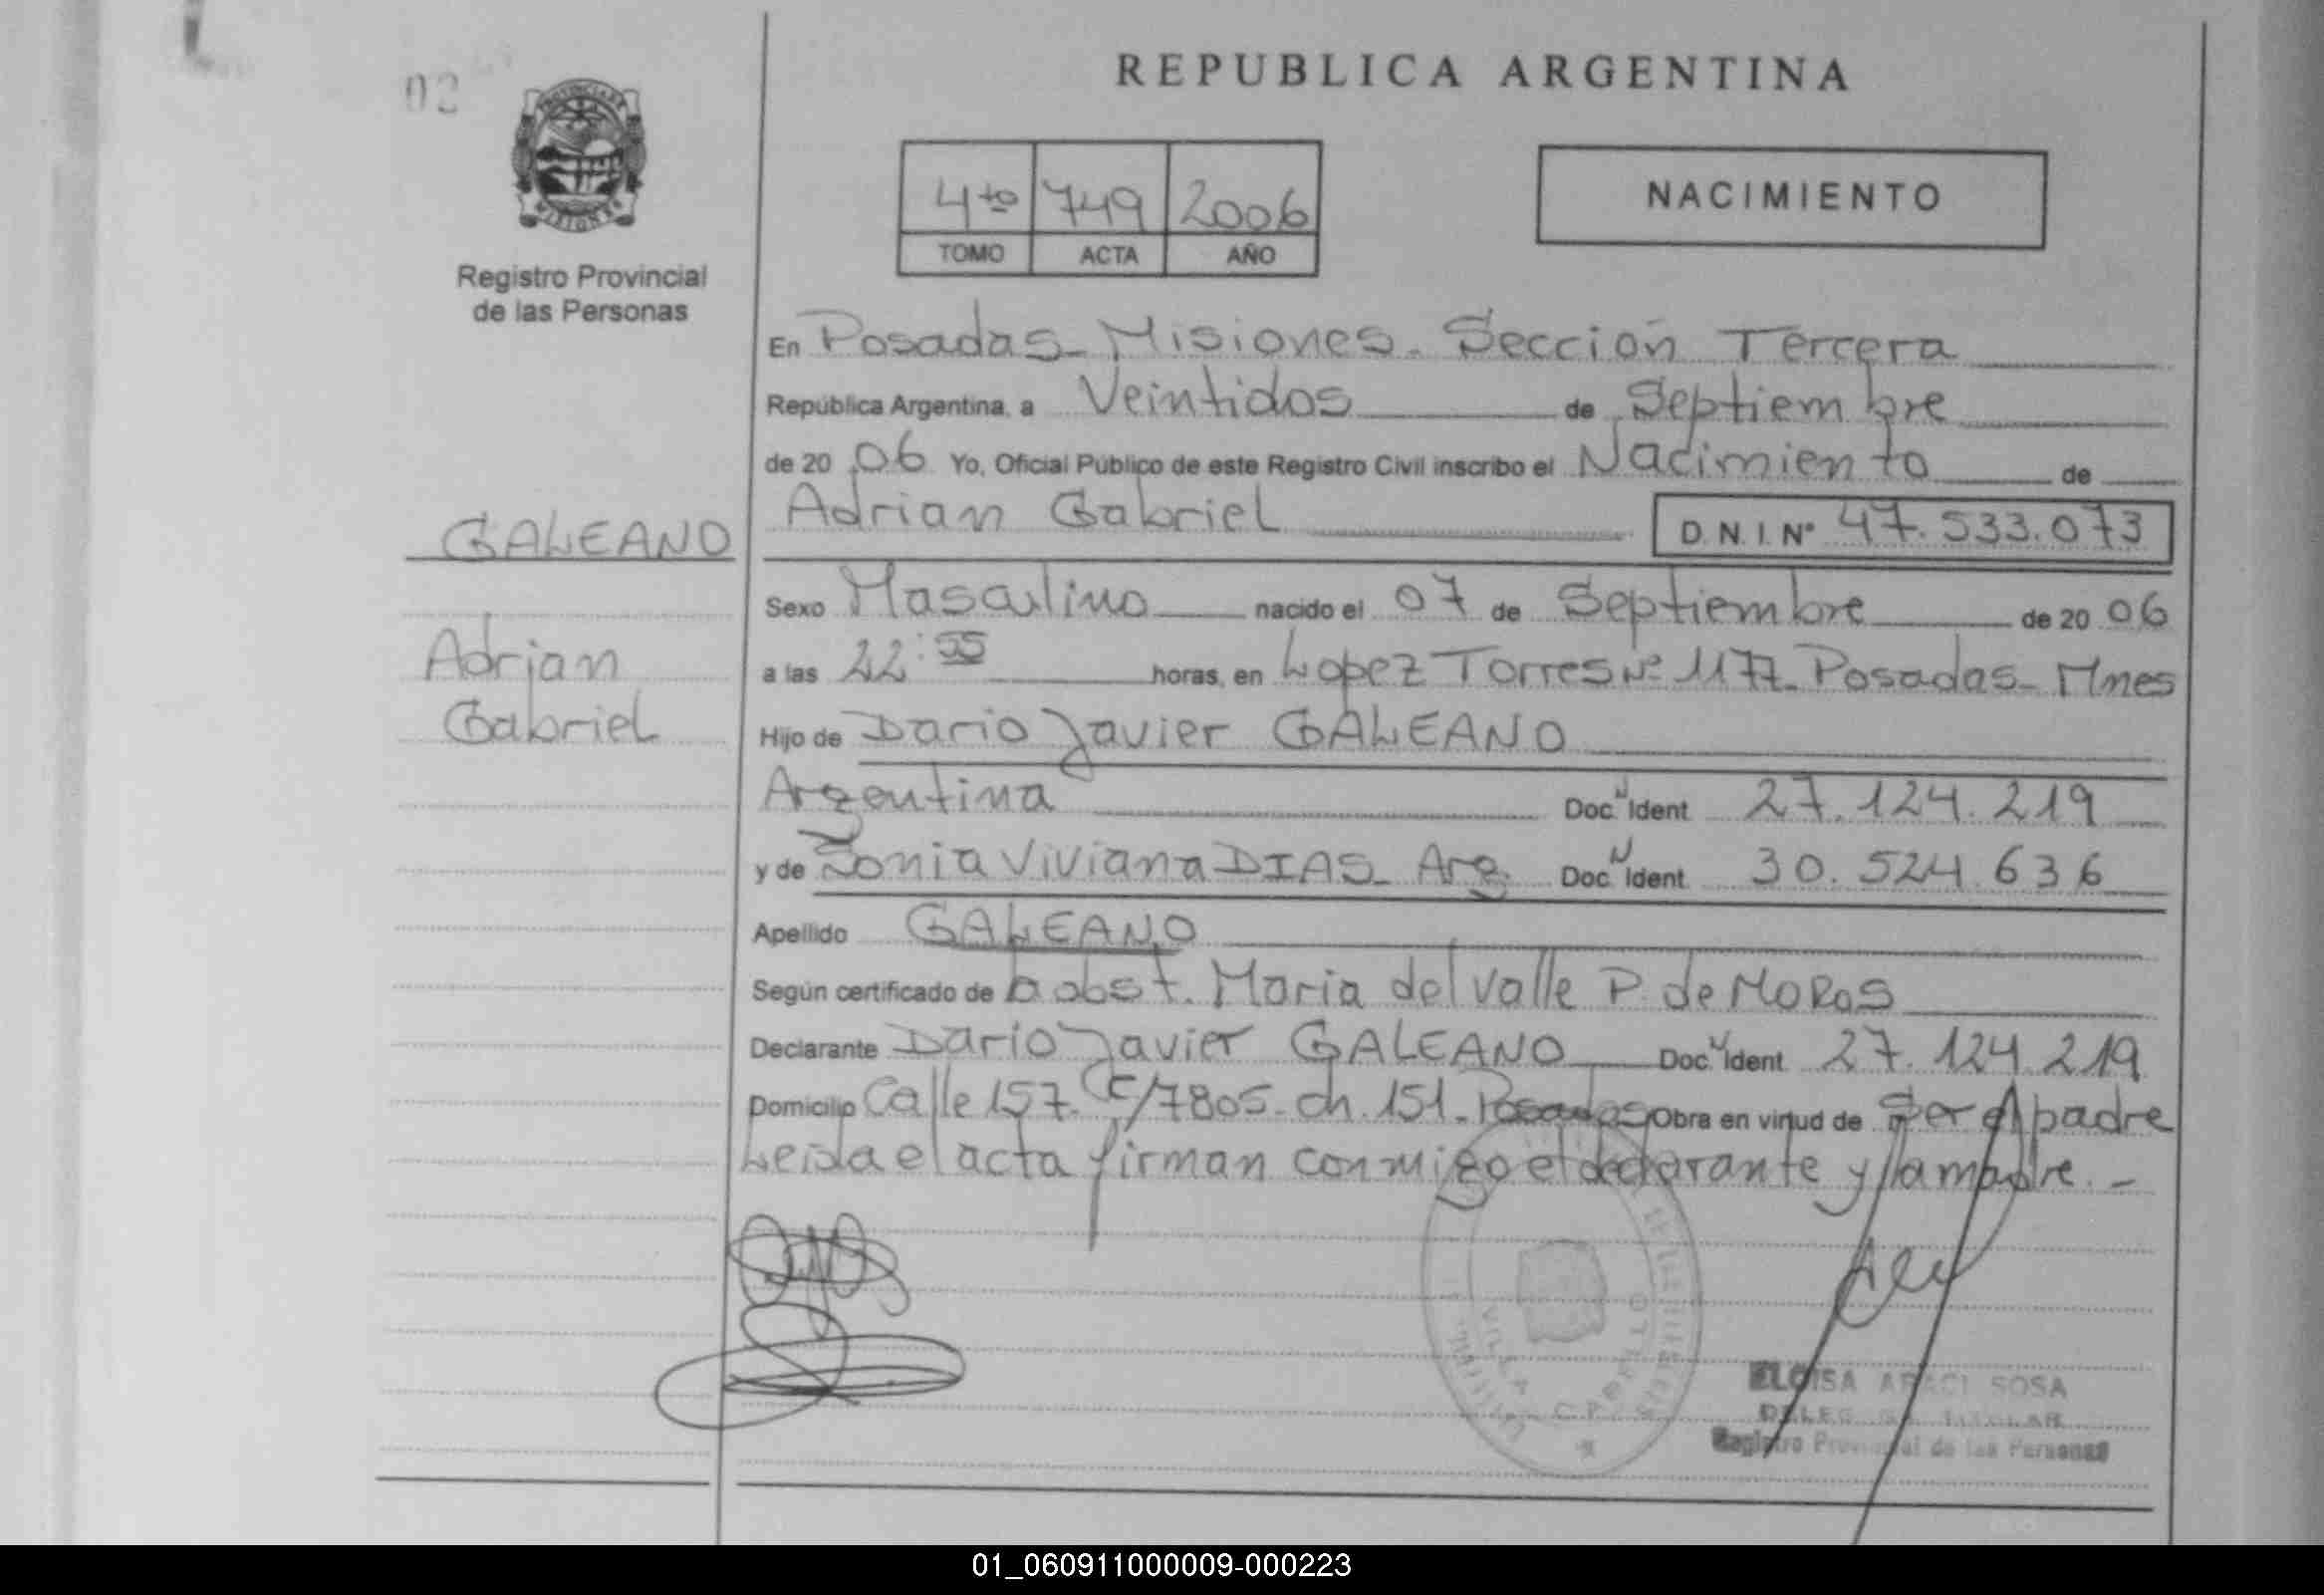 02
PROVINCIA DE
MISIONES
Registro Provincial
de las Personas
REPUBLICA ARGENTINA
4to 749 2006
TOMO ACTA AÑO
NACIMIENTO
En Posadas - Misiones - Sección Tercera
República Argentina, a Veintidos de Septiembre
de 20 06 Yo, Oficial Público de este Registro Civil inscribo el Nacimiento de
Adrian Gabriel D.N.I. Nº 47.533.073
GALEANO
Sexo Masculino nacido el 07 de Septiembre de 20 06
Adrian
a las 22:55 horas, en Lopez Torres Nº 1177 - Posadas - Mnes
Gabriel
Hijo de Dario Javier GALEANO
Argentina Doc. N Ident 27.124.219
y de Sonia Viviana DIAS - Arg. Doc. N Ident. 30.524.636
Apellido GALEANO
Según certificado de la obst. Maria del Valle P. de MORAS
Declarante Dario Javier GALEANO Doc. N Ident 27.124.219
Domicilio Calle 157 - C/7805 - ch. 151 - Posadas Obra en virtud de Ser el padre
Leida el acta firman conmigo el declarante y la madre. -
VILLA CABELLO
ELOISA ARACI SOSA
TITULAR
Registro Provincial de las Personas
01_060911000009-000223